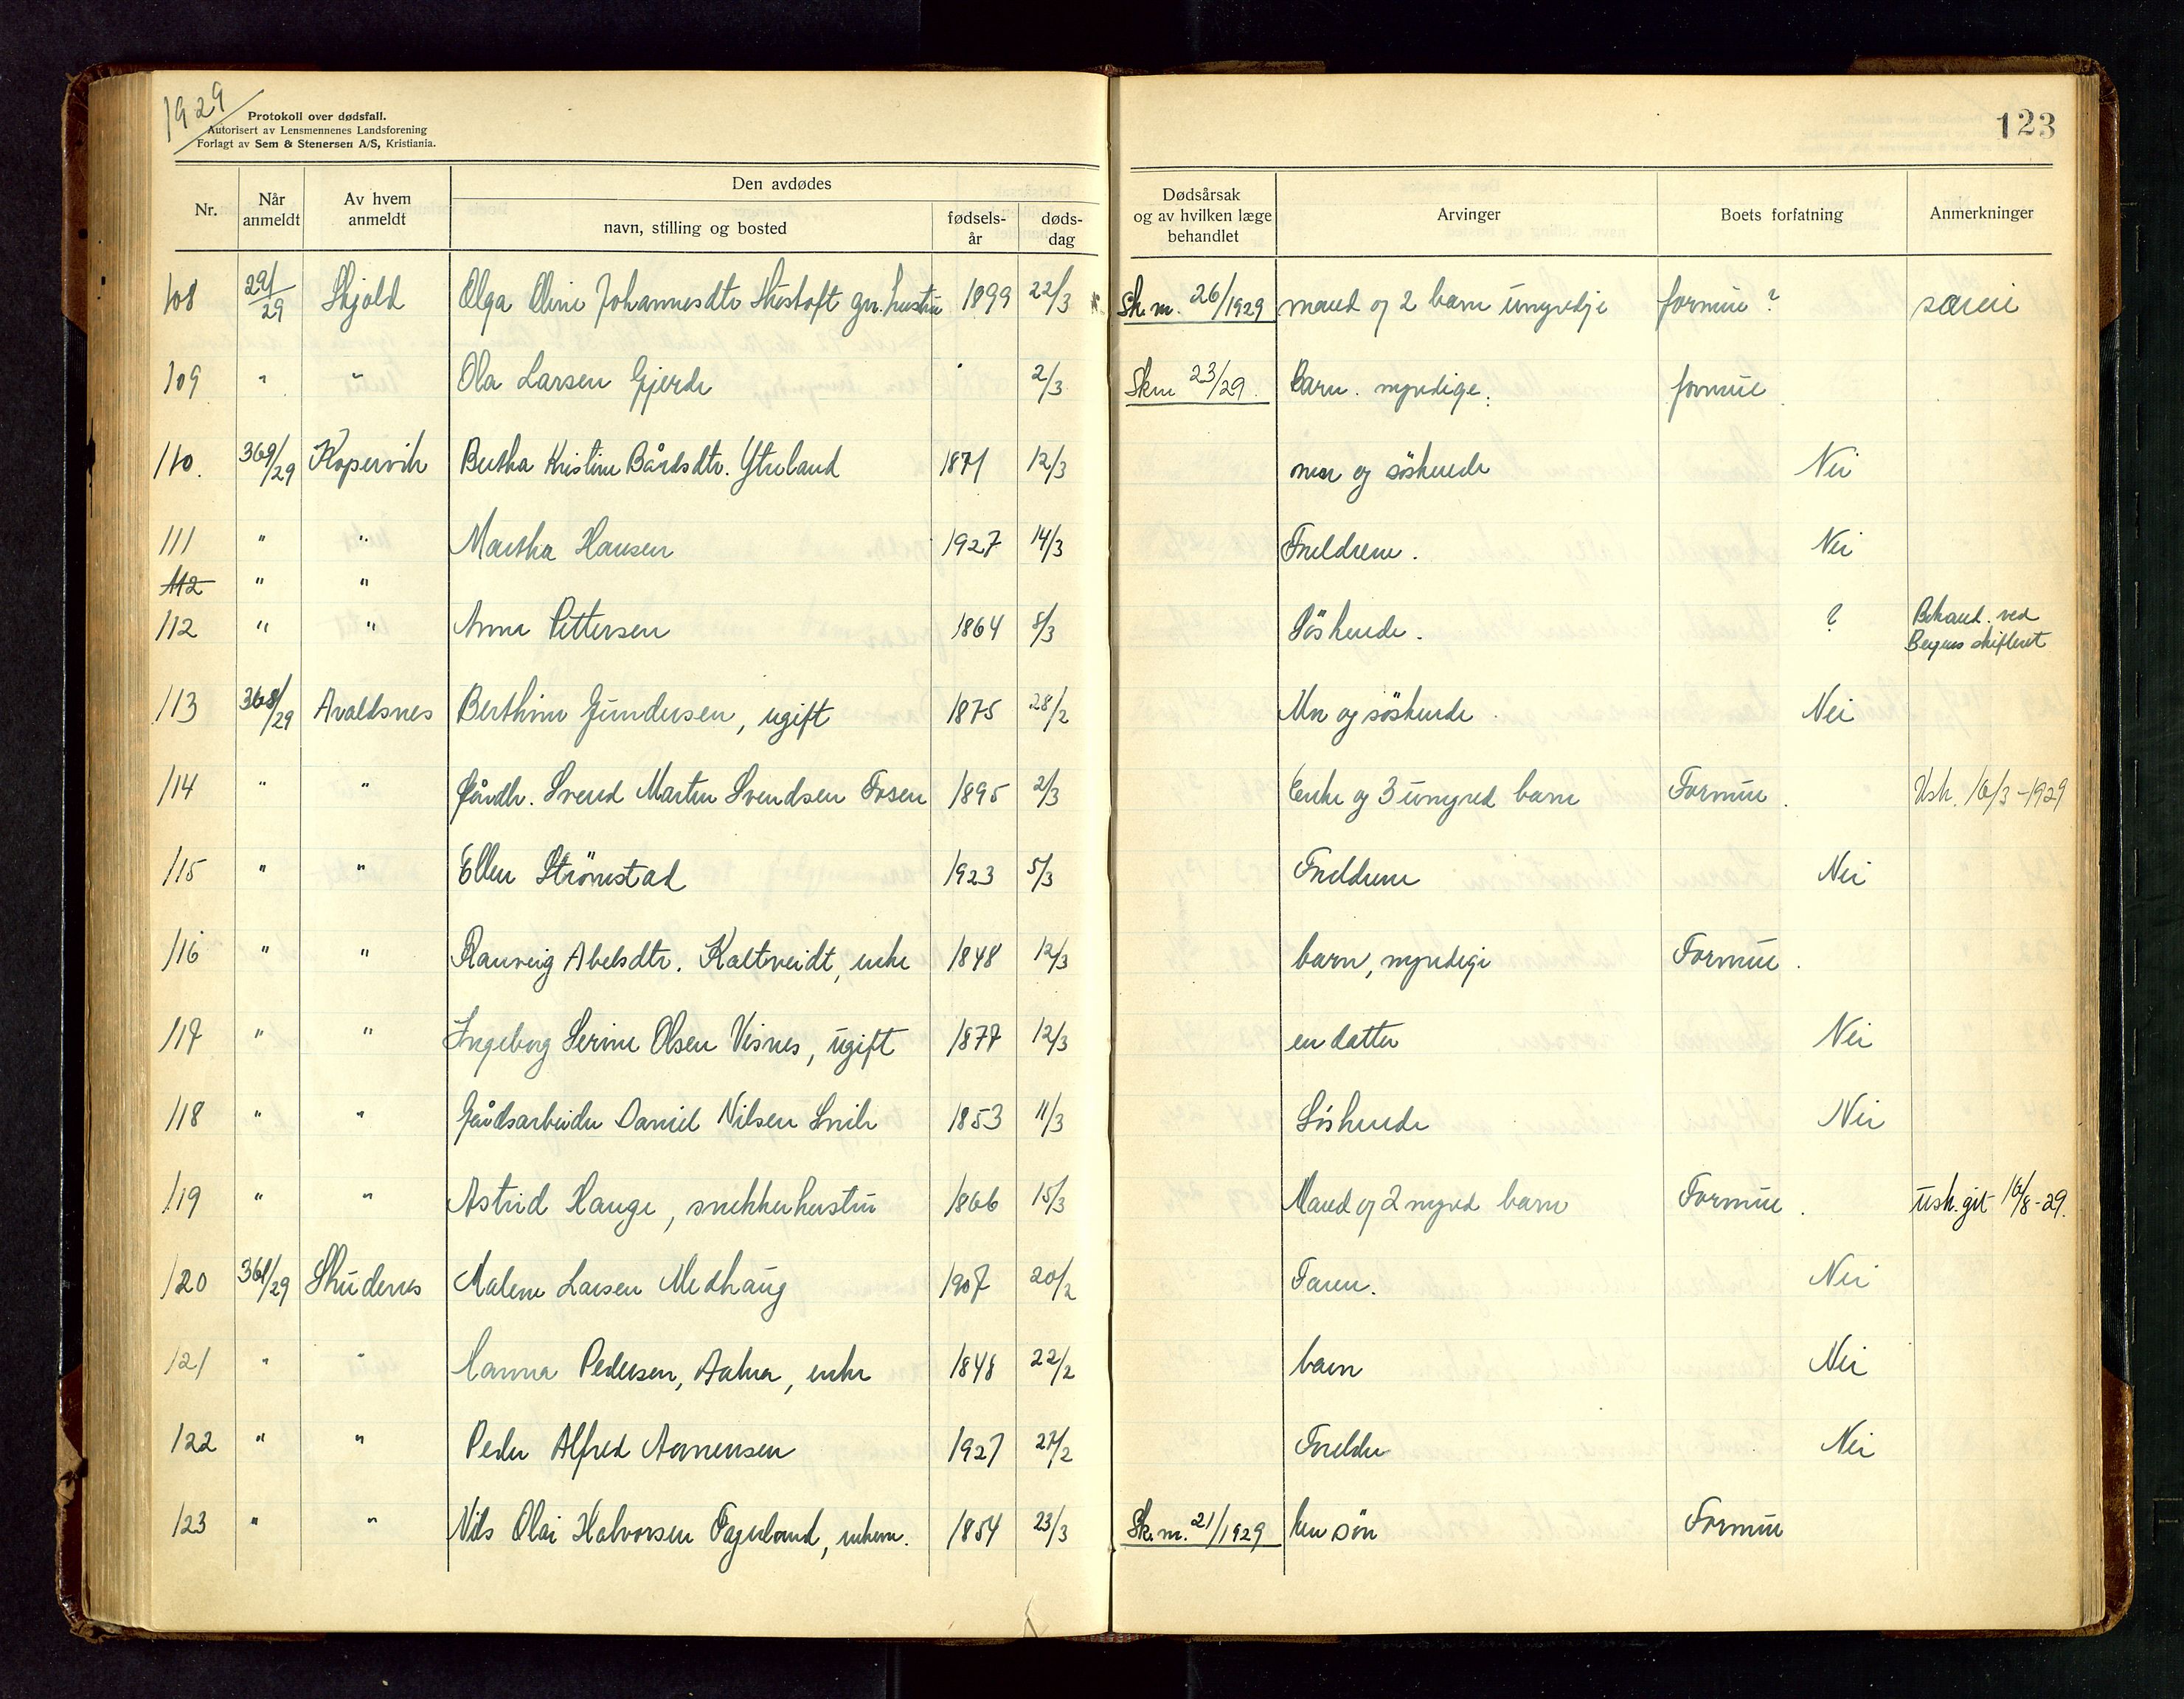 1929
Protokoll over dødsfall.
Autorisert av Lensmennenes Landsforening
Forlagt av Sem & Stenersen A/S, Kristiania.
123
Nr. Når anmeldt Av hvem anmeldt Den avdødes navn, stilling og bosted fødsels-år døds-dag Dødsårsak og av hvilken læge behandlet Arvinger Boets forfatning Anmerkninger
108 291/29 Skjold Olga Oline Johannesdtr gm. hustru 1899 22/3 Sk.m. 26/1929 mand og 2 barn umyndje formue ? særeie
109 " " Ola Larsen Gjerde " 2/3 Skm 23/29. Barn. myndige. formue
110. 369/29 Kopervik Bertha Kristine Bårdsdtr. Ytreland 1871 12/3 mor og söskende Nei
111 " " Martha Hansen 1927 14/3 Foreldrene. Nei
112 " "
112 " " Anna Pettersen 1864 8/3 Söskende. ? Behand. ved
Bergens skifteret
113 368/29 Avaldsnes Berthine Gundersen, ugift 1875 28/2 Mor og söskende. Nei
114 " " Gårdbr. Svend Martin Svendsen Fosen 1895 2/3 Enke og 3 umynd barn Formue. Usk. 16/3-1929
115 " " Ellen Strömstad 1923 5/3 Foreldrene Nei
116 " " Ranveig Abelsdtr. Kaltveidt, enke 1848 12/3 barn, myndige Formue.
117 " " Ingeborg Serine Olsen Visnes, ugift 1877 12/3 en datter Nei
118 " " Gårdsarbeider Daniel Nilsen Snik 1853 11/3 Söskende Nei
119 " " Astrid Hauge, snekkerhustru 1866 15/3 Mand og 2 mynd barn Formue. usk. git 16/8-29.
120 361/29 Skudenes Malene Larsen Medhaug 1907 20/2 Faren. Nei
121 " " Hanna Pedersen, Aakra, enke 1848 22/2 barn Nei
122 " " Peder Alfred Aamensen 1927 27/2 Foreldre Nei
123 " " Nils Olai Halvorsen Fagerland, enkem. 1854 23/3 Sk.m. 21/1929 en sön Formue